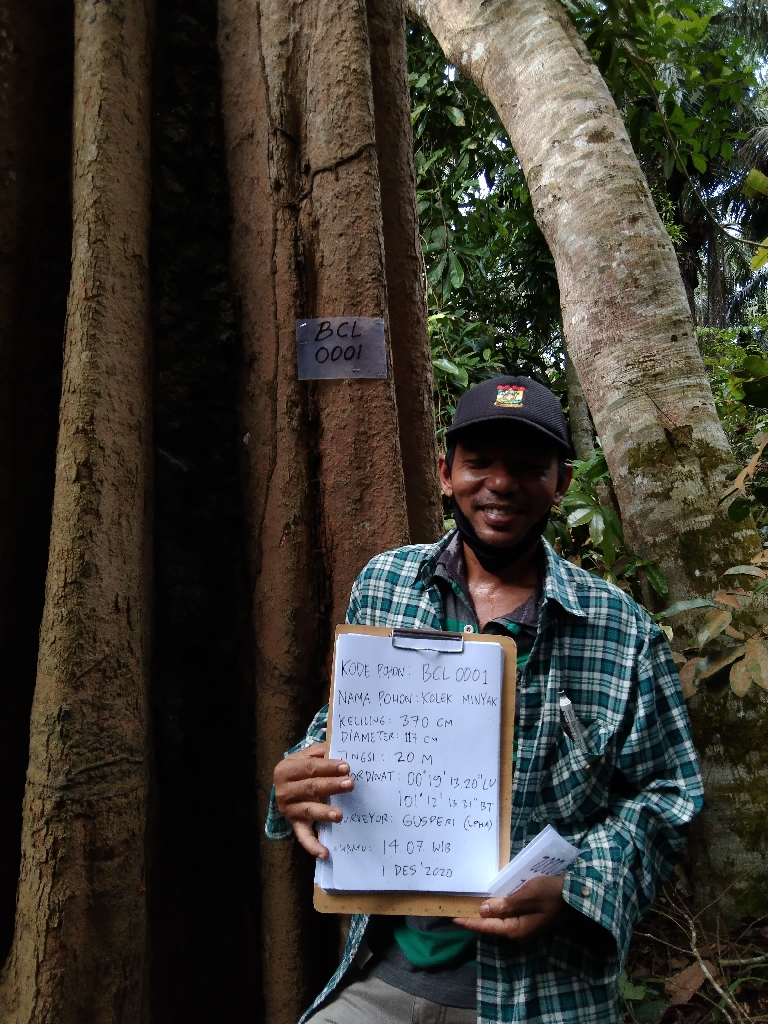 BCL
0001
KODE POHON: BCL 0001
NAMA POHON: KOLEK MINYAK
KELILING: 370 CM
DIAMETER: 117 CM
TINGGI: 20 M
ORDINAT: 00°19' 13.20" LU
101°12' 13.31" BT
URVEYOR: GUSPERI (LPHA)
14.07 WIB
1 DES '2020